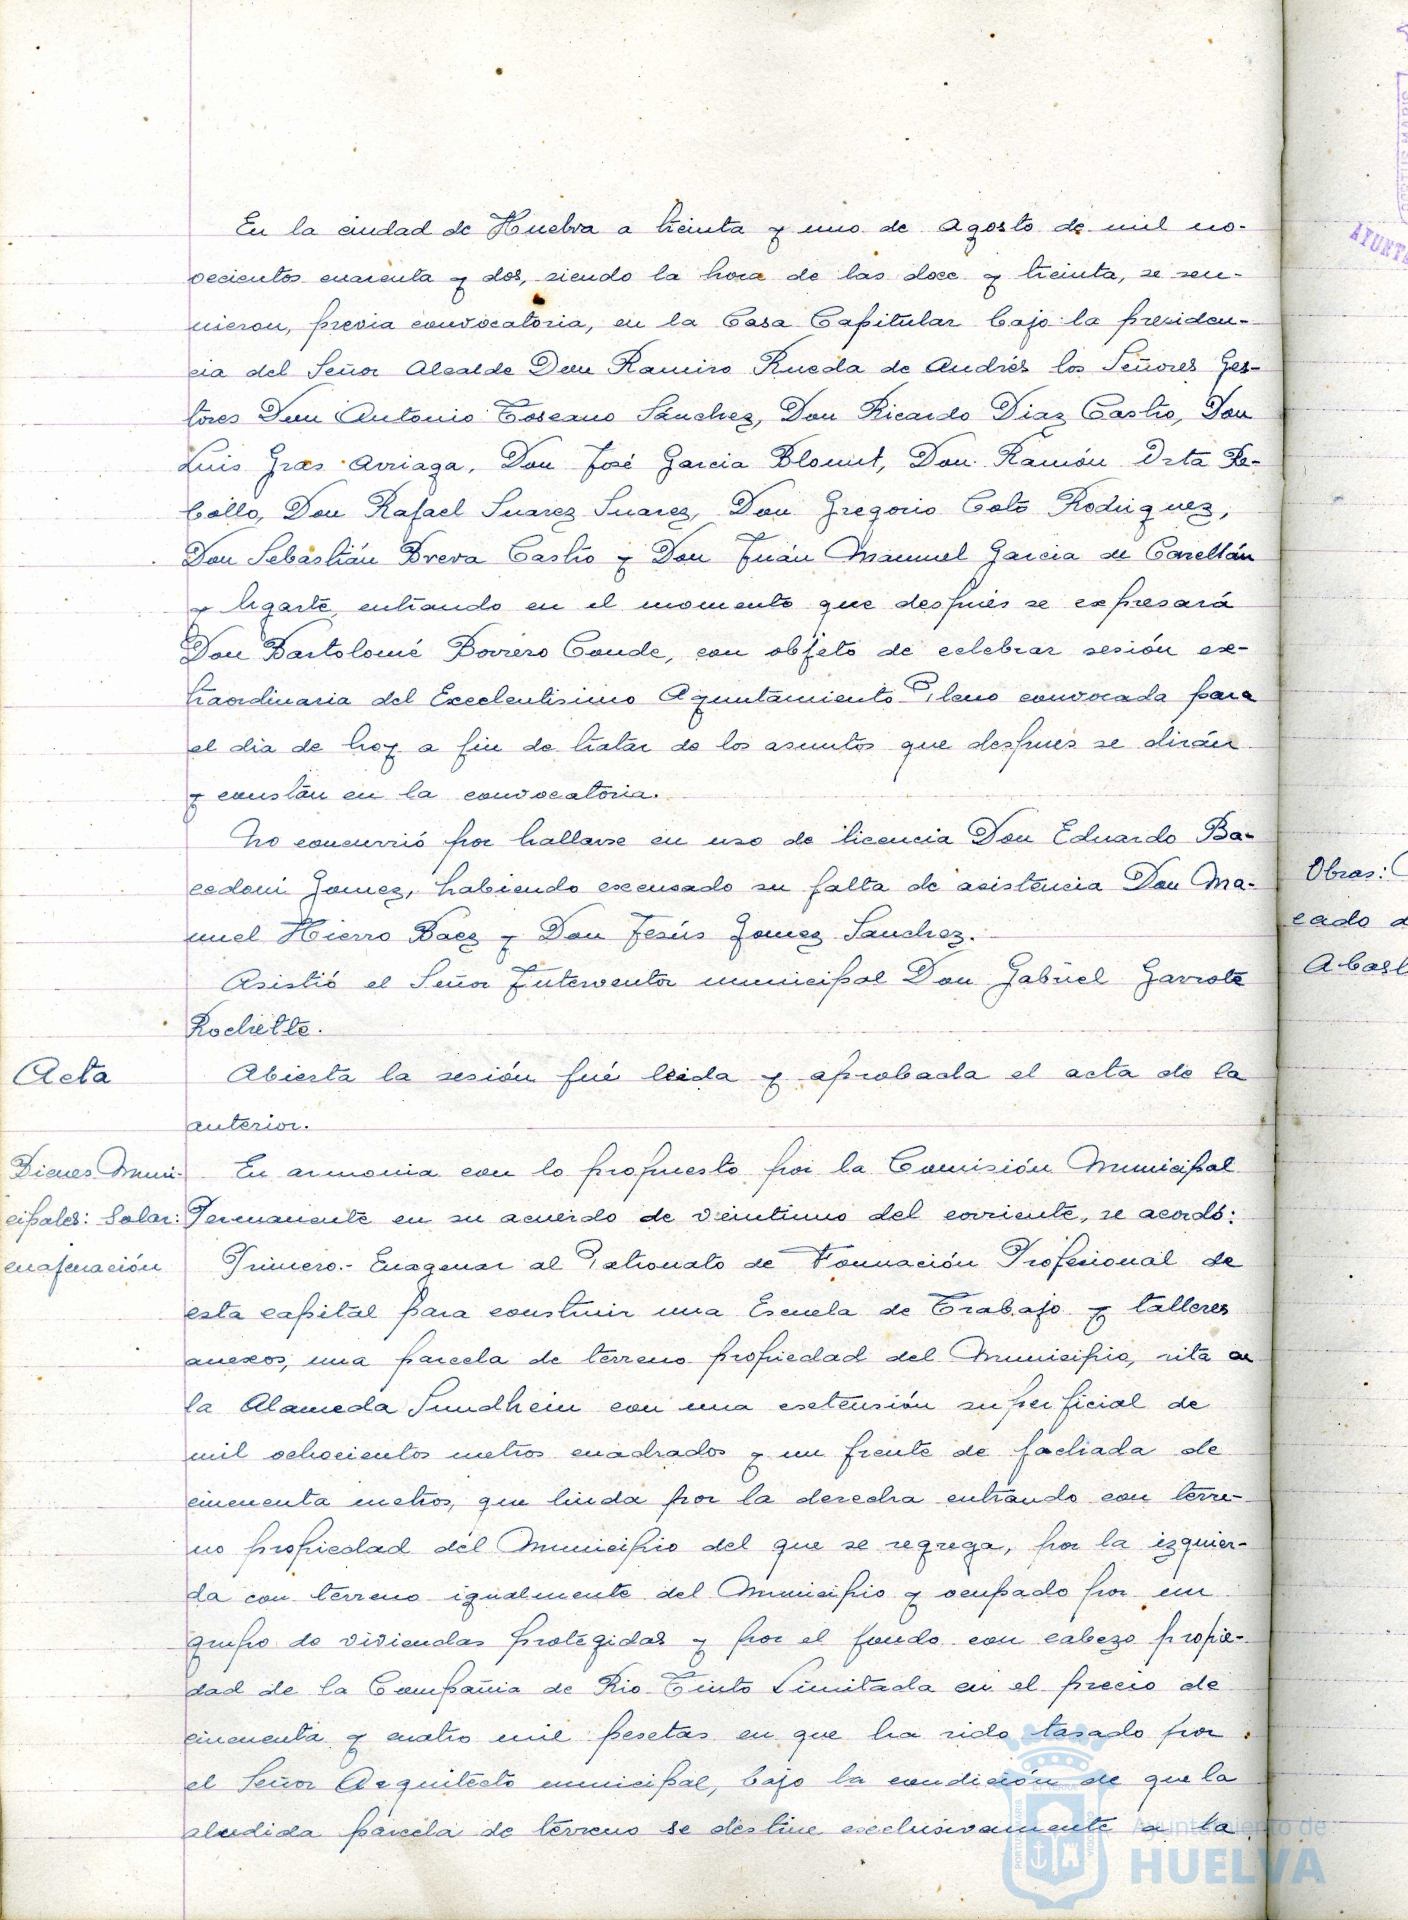 En la ciudad de Huelva a treinta y uno de Agosto de mil no-
vecientos cuarenta y dos, siendo la hora de las doce y treinta, se reu-
nieron, previa convocatoria, en la Casa Capitular bajo la presiden-
cia del Señor Alcalde Don Ramiro Rueda de Andrés los Señores Ges-
tores Don Antonio Toscano Sánchez, Don Ricardo Diaz Castro, Don
Luis Gras Arriaga, Don José Garcia Blomut, Don Ramón Orta Re-
bollo, Don Rafael Suarez Suarez, Don Gregorio Coto Rodriguez,
Don Sebastián Breva Castro y Don Juán Manuel Garcia de
y Ugarte, entrando en el momento que después se expresará
Don Bartolomé Borrero Conde, con objeto de celebrar sesión ex-
traordinaria del Excelentisimo Ayuntamiento Pleno convocada para
el dia de hoy a fin de tratar de los asuntos que despues se dirán
y constan en la convocatoria.
No concurrió por hallarse en uso de licencia Don Eduardo Ba-
cedoni Gomez, habiendo excusado su falta de asistencia Don Ma-
nuel Hierro Baez y Don Jesús Gomez Sanchez.
Asistió el Señor Interventor municipal Don Gabriel Garrote
Rochette.
Acta
Abierta la sesión fué leida y aprobada el acta de la
anterior.
Bienes Muni-
cipales: Solar:
enajenación
En armonia con lo propuesto por la Comisión Municipal
Permanente en su acuerdo de veintiuno del corriente, se acordó:
Primero.- Enagenar al Patronato de Formación Profesional de
esta capital para construir una Escuela de Trabajo y talleres
anexos, una parcela de terreno propiedad del Municipio, sita en
la Alameda Sundhein con una extensión superficial de
mil ochocientos metros cuadrados y un frente de fachada de
cincuenta metros, que linda por la derecha entrando con terre-
no propiedad del Municipio del que se regrega, por la izquier-
da con terreno igualmente del Municipio y ocupado por un
grupo de viviendas protegidas y por el fondo con cabezo propie-
dad de la Compañia de Rio Tinto Limitada en el precio de
cincuenta y cuatro mil pesetas en que ha sido tasado por
el Señor Arquitecto municipal, bajo la condición de que la
aludida parcela de terreno se destine exclusivamente a la
Obras:
cado d
Abast
AYUNTA
Ayuntamiento de
HUELVA